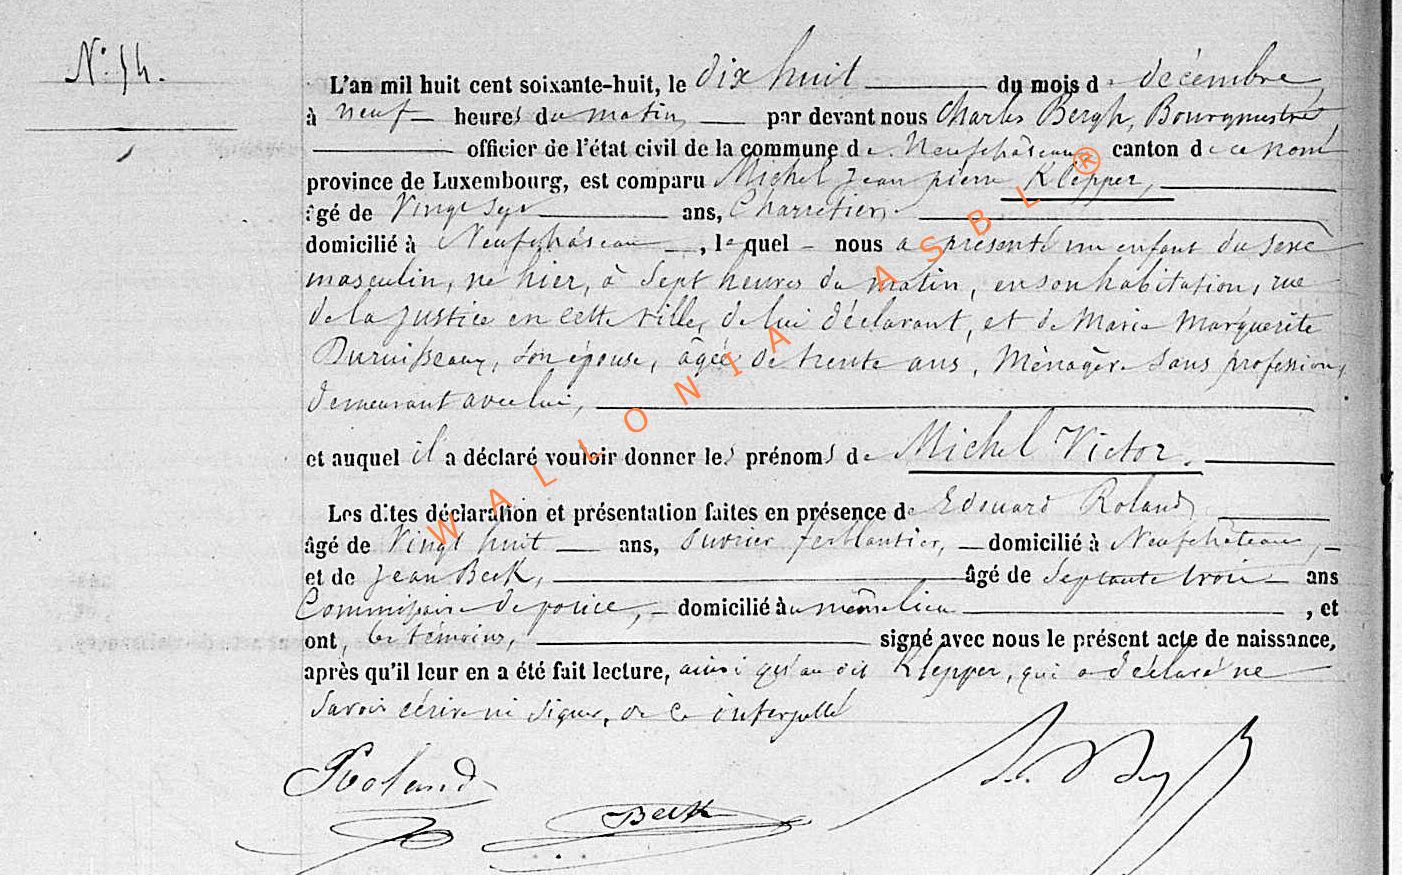 N° 54.
L'an mil huit cent soixante-huit, le dix huit du mois de décembre,
à neuf heures du matin, par devant nous Charles Bergh, Bourgmestre,
officier de l'état civil de la commune de Neufchâteau canton de ce nom
province de Luxembourg, est comparu Michel Jean pierre Klepper,
âgé de Vingt Sept ans, Charretier,
domicilié à Neufchâteau, lequel nous a présenté un enfant du sexe
masculin, né hier, à Sept heures du matin, en son habitation, rue
de la Justice en cette ville, de lui déclarant, et de Marie Marguerite
Duruisseaux, son épouse, âgée de trente ans, Ménagère Sans profession,
demeurant avec lui,
et auquel il a déclaré vouloir donner les prénoms de Michel Victor.
Les dites déclaration et présentation faites en présence de Edouard Roland,
âgé de Vingt huit ans, ouvrier ferblantier, domicilié à Neufchâteau,
et de Jean Beck, âgé de Septante trois ans
Commissaire de police, domicilié au même lieu, et
ont, les témoins, signé avec nous le présent acte de naissance,
après qu'il leur en a été fait lecture, ainsi qu'au dit Klepper, qui a déclaré ne
Savoir écrire ni Signer, de ce interpellé
Roland
Beck
WALLONIA ASBL ®